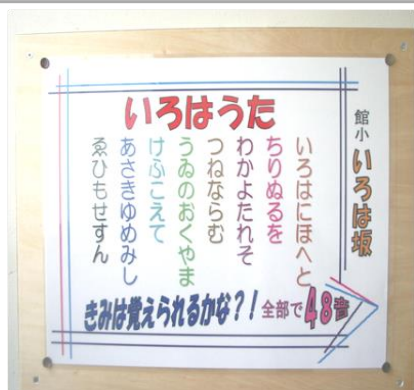 館小 いろは坂
いろはうた
いろはにほへと
ちりぬるを
わかよたれそ
つねならむ
うゐのおくやま
けふこえて
あさきゆめみし
ゑひもせすん
きみは覚えられるかな？！全部で48音